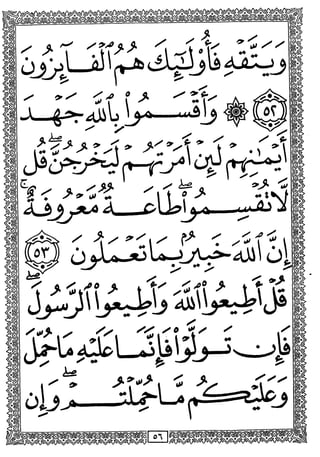 وَيَتَّقْهِ فَأُو۟لَـٰٓئِكَ هُمُ ٱلْفَآئِزُونَ
۝٥٢ ۞ وَأَقْسَمُوا۟ بِٱللَّهِ جَهْدَ
أَيْمَـٰنِهِمْ لَئِنْ أَمَرْتَهُمْ لَيَخْرُجُنَّ ۖ قُل
لَّا تُقْسِمُوا۟ ۖ طَاعَةٌ مَّعْرُوفَةٌ ۚ
إِنَّ ٱللَّهَ خَبِيرٌۢ بِمَا تَعْمَلُونَ ۝٥٣
قُلْ أَطِيعُوا۟ ٱللَّهَ وَأَطِيعُوا۟ ٱلرَّسُولَ ۖ
فَإِن تَوَلَّوْا۟ فَإِنَّمَا عَلَيْهِ مَا حُمِّلَ
وَعَلَيْكُم مَّا حُمِّلْتُمْ ۖ وَإِن
٥٦